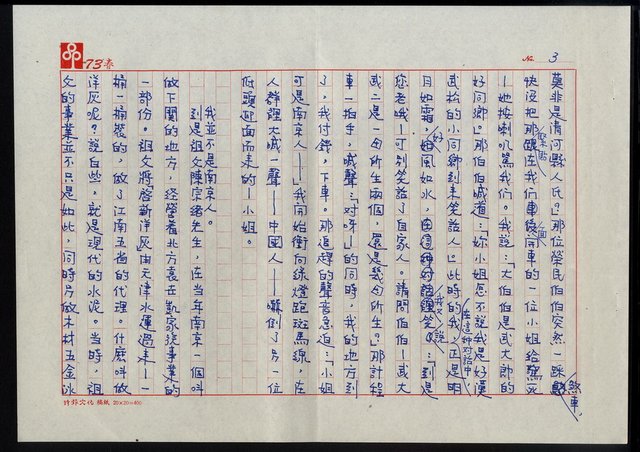 73春
No. 3
莫非是清河縣人氏?」那位榮民伯伯突然一踩煞車,
快沒把那跟在我們車後緊貼個開車的一位小姐給駡死
—她按喇叭駡我們。我說:「大伯伯是武大郎的
好同鄉。」那伯伯喊道:「妳小姐怎不說我是好漢
武松的小同鄉到來笑話人。」此時的我,在這種對話中,正是明
月如霜,好風如水,我又說:「到是
您老哦—可別笑話了自家人。請問伯伯—武大
武二是一句所生兩個,還是幾句所生。」那計程
車一拍手,喊聲:「对呀—」的同時,我的地方到
了,我付錢,下車。那追趕的聲音急迫:「小姐
可是南京人——」我開始衝向綠燈跑斑馬線,在
人群裡大喊一聲——中國人——嚇倒了另一位
低頭迎面而來的—小姐。
我並不是南京人。
到是祖父陳宗緒先生,在當年南京一個叫
做下關的地方,經營着北方袁世凱家從事業的
一部份。祖父將啓新洋灰由天津水運過來——
桶一桶裝的,做了江南五省的代理。什麼叫做
洋灰呢?說白些,就是現代的水泥。當時,祖
父的事業並不只是如此,同時另做木材五金冰
詩鄉文化 稿紙 20×20=400